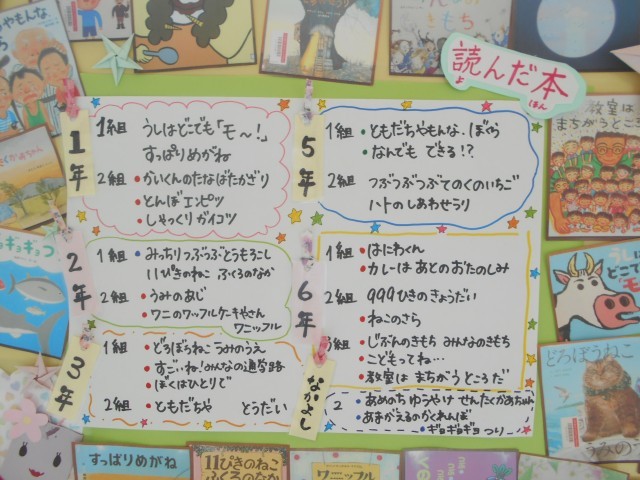 読んだ本
よ ほん
1年
1組 うしはどこでも「モ〜!」
すっぱりめがね
2組 かいくんのたなばたかざり
とんぼエンピツ
しゃっくりガイコツ
2年
1組 みっちりつぶつぶとうもろこし
11ぴきのねこ ふくろのなか
2組 うみのあじ
ワニのワッフルケーキやさん
ワニッフル
3年
1組 どろぼうねこ うみのうえ
すごいね!みんなの通学路
ぼくはひとりで
2組 ともだちや とうだい
5年
1組 ともだちやもんな、ぼくら
なんでも できる!?
2組 つぶつぶつぶてのくのいちご
ハトのしあわせうり
6年
1組 はにわくん
カレーは あとのおたのしみ
2組 999ひきのきょうだい
ねこのさら
3組 じぶんのきもち みんなのきもち
こどもってね…
教室は まちがうところだ
なかよし
2 あめのちゆうやけ せんたくかあちゃん
あまがえるのかくれんぼ
ギョギョギョ つり
教室は
まちがうところ
どろぼうねこ
すっぱりめがね
11ぴきのねこ
ふくろのなか
ワニッフル